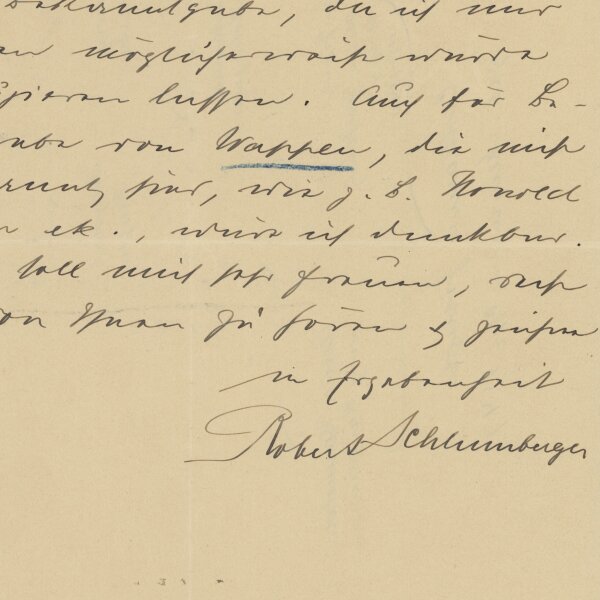 Bekanntgabe, die ich nur
möglicherweise würde
kopieren lassen. Auch für Be-
gabe von Wappen, die nicht
sind, wie z. B. Honold
etc., wäre ich dankbar.
soll mich sehr freuen, recht
von Ihnen zu hören & zeichne
in Ergebenheit
Robert Schlumberger